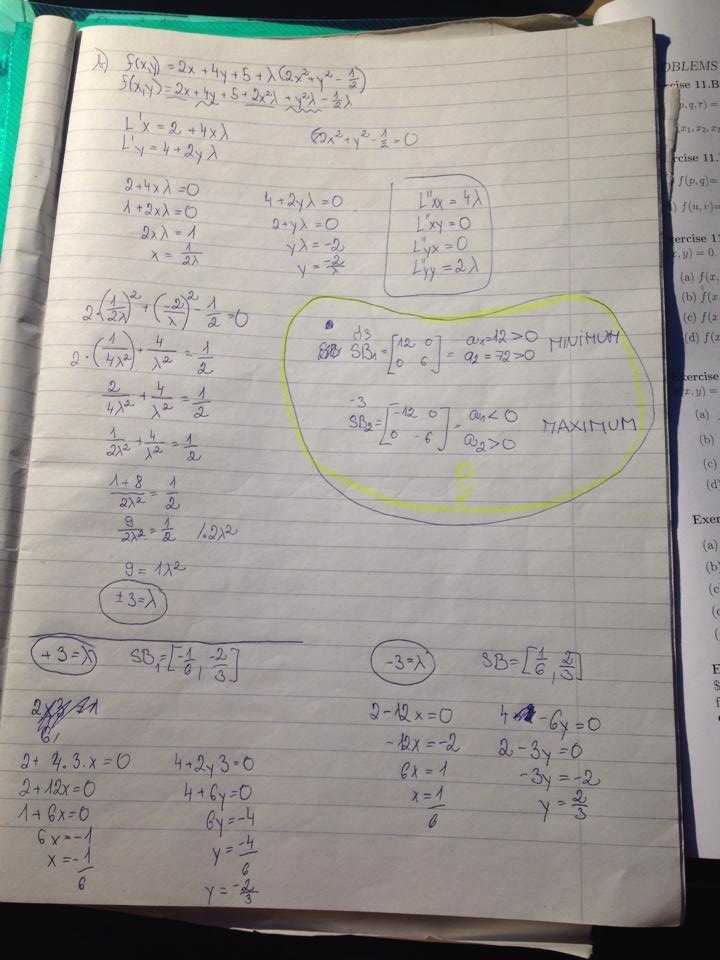 λ) f(x,y) = 2x + 4y + 5 + λ(2x² + y² - 1/2)
f(x,y) = 2x + 4y + 5 + 2x²λ + y²λ - 1/2 λ
L'x = 2 + 4xλ
L'y = 4 + 2yλ
2x² + y² - 1/2 = 0
2+4xλ=0
1+2xλ=0
2xλ = 1
x = 1/2λ
4+2yλ=0
2+yλ=0
yλ=-2
y = -2/λ
L''xx = 4λ
L''xy = 0
L''yx = 0
L''yy = 2λ
2·(1/2λ)² + (-2/λ)² - 1/2 = 0
2·(1/4λ²) + 4/λ² = 1/2
2/4λ² + 4/λ² = 1/2
1/2λ² + 4/λ² = 1/2
1+8/2λ² = 1/2
9/2λ² = 1/2 /·2λ²
9 = 1λ²
±3=λ
SB₁ = [12 0
0 6] = a₁=12>0
a₂=72>0
MINIMUM
-3
SB₂ = [-12 0
0 -6] = a₁<0
a₂>0
MAXIMUM
+3=λ
SB₁ = [-1/6, -2/3]
6,
2+ 4.3.x = 0
2+12x=0
1+6x=0
6x=-1
x = -1/6
4+2y3=0
4+6y=0
6y=-4
y = -4/6
y = -2/3
-3=λ
SB = [1/6, 2/3]
2-12x=0
-12x=-2
6x=1
x=1/6
4 -6y=0
2-3y=0
-3y=-2
y = 2/3
OBLEMS
cise 11.B
p,q,r) =
x₁,x₂,x₃
rcise 11.
f(p,q)=
) f(u,r)=
ercise 11
x,y) = 0.
(a) f(x
(b) f(x,
(c) f(x
(d) f(x
Exercise
(x,y) =
(a)
(b)
(c)
(d)
Exer
(a)
(b)
(c)
(
E
$
f